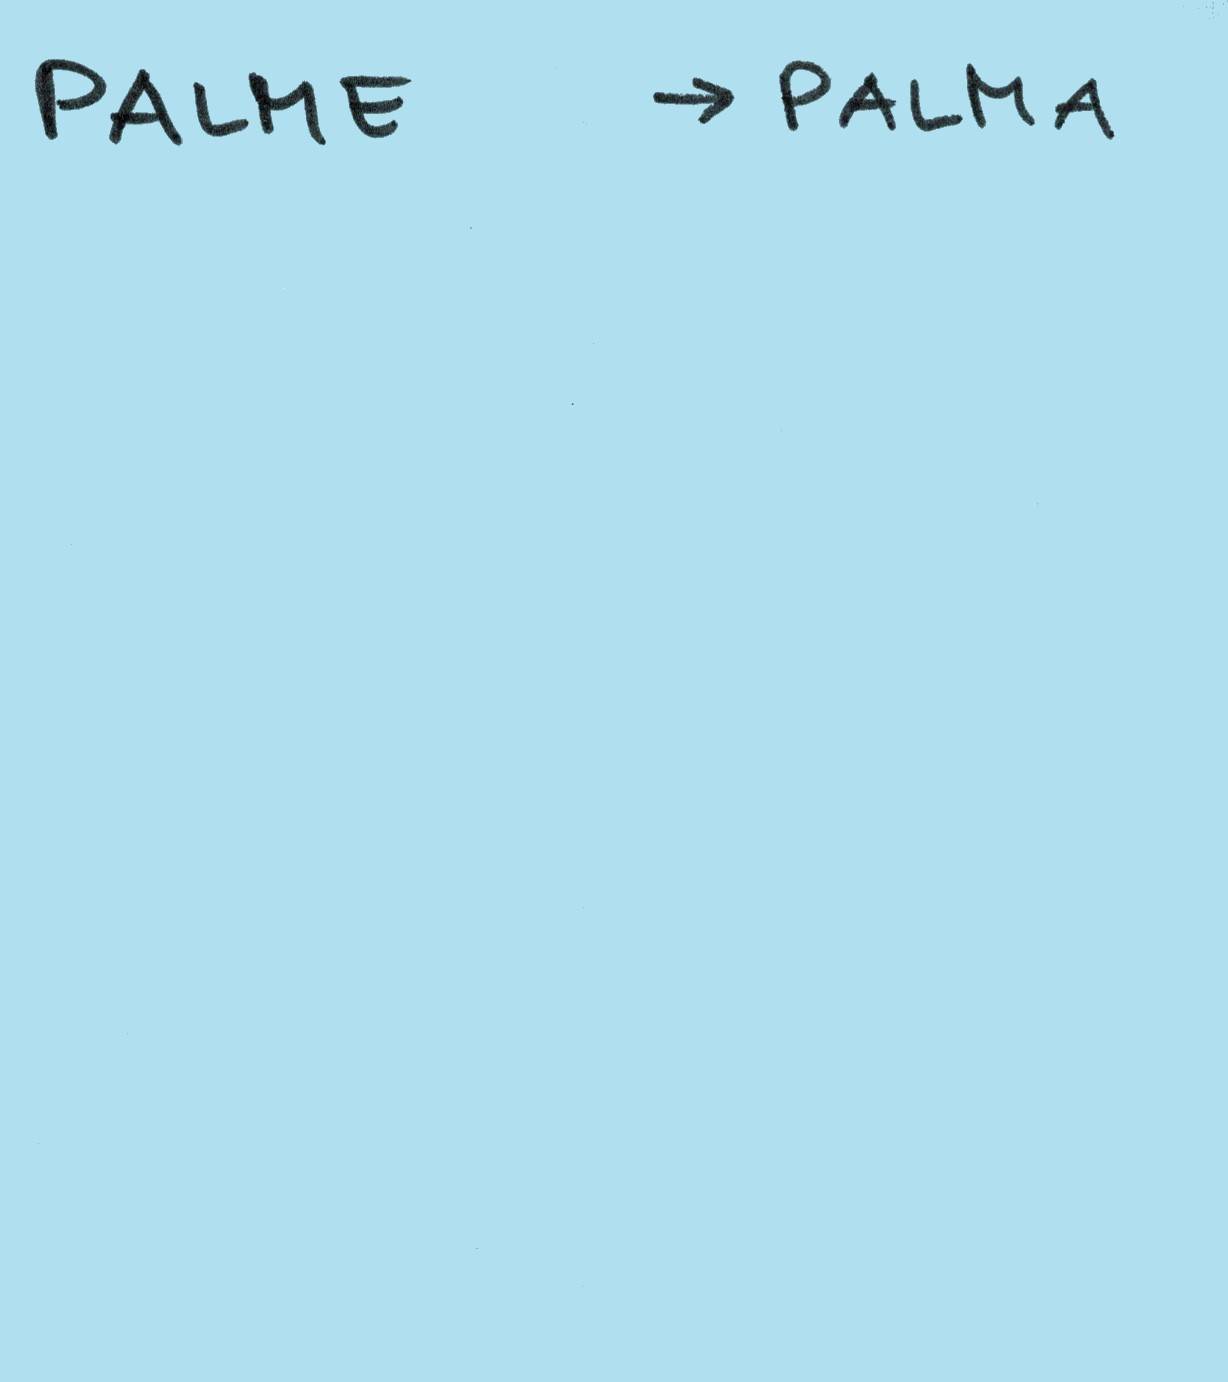 PALME → PALMA